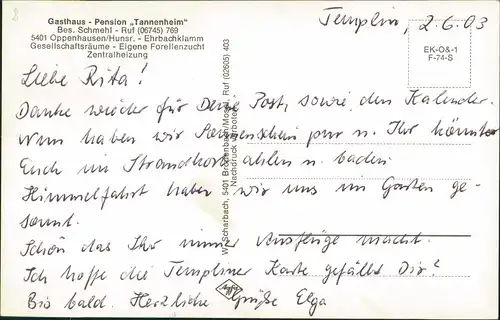 Gasthaus - Pension „Tannenheim"
Bes. Schmehl - Ruf (06745) 769
5401 Oppenhausen/Hunsr. - Ehrbachklamm
Gesellschaftsräume - Eigene Forellenzucht
Zentralheizung
Templin, 2.6.03
EK-O&-1
F-74-S
Liebe Rita!
Danke wieder für Deine Post, sowie den Kalender.
Nun haben wir Sonnenschein pur u. Ihr könntet
Euch im Strandkorb aalen u. baden.
Himmelfahrt haben wir uns im Garten ge-
sonnt.
Schön das Ihr immer Ausflüge macht.
Ich hoffe die Templiner Karte gefällt Dir?
Bis bald. Herzliche Grüße Elga
5401 Brodenbach/Mosel, Ruf (02605) 403
Nachdruck verboten